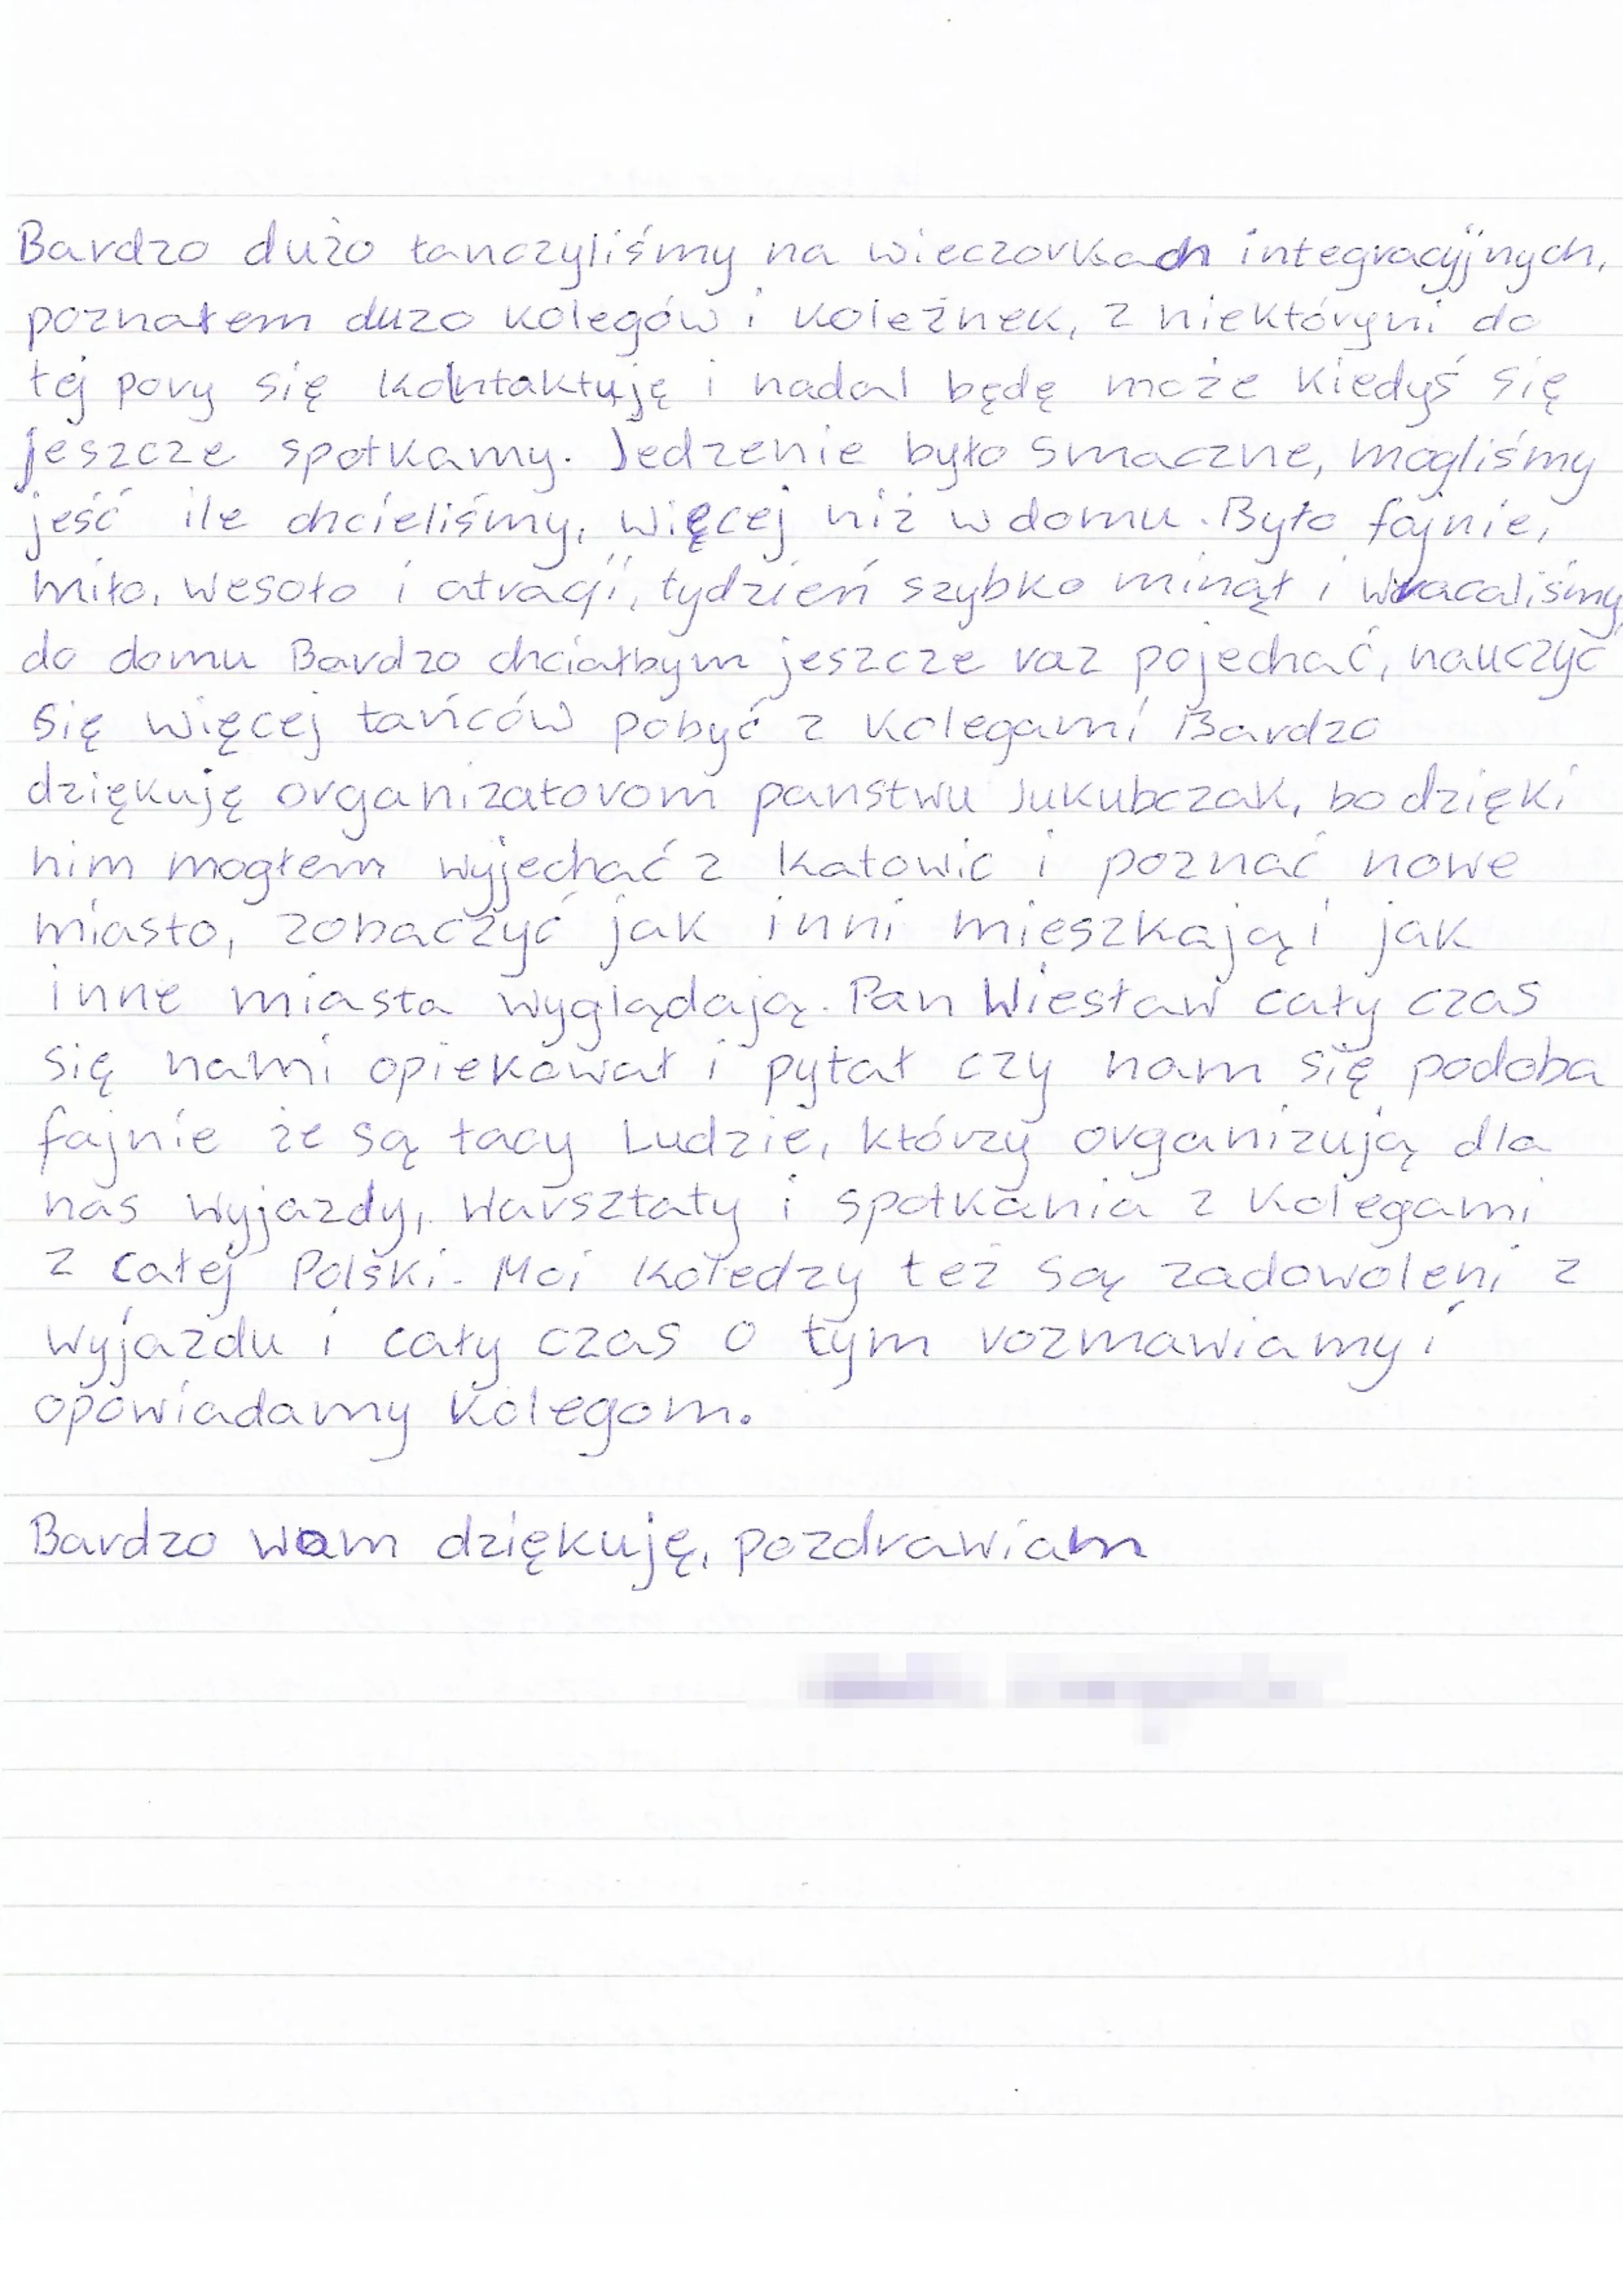 Bardzo dużo tanczyliśmy na wieczorkach integracyjnych,
poznałem duzo kolegów i koleżnek, z niektórymi do
tej pory się kontaktuję i nadal będę może kiedyś się
jeszcze spotkamy. Jedzenie było smaczne, mogliśmy
jeść ile chcieliśmy, więcej niż w domu. Było fajnie,
miło, wesoło i atracji, tydzień szybko minął i wracaliśmy
do domu Bardzo chciałbym jeszcze raz pojechać, nauczyć
się więcej tańców pobyć z kolegami Bardzo
dziękuję organizatorom panstwu Jukubczak, bo dzięki
nim mogłem wyjechać z Katowic i poznać nowe
miasto, zobaczyć jak inni mieszkają i jak
inne miasta wyglądają. Pan Wiesław cały czas
się nami opiekował i pytał czy nam się podoba
fajnie że są tacy Ludzie, którzy organizują dla
nas wyjazdy, warsztaty i spotkania z kolegami
z całej Polski. Moi koledzy też są zadowoleni z
wyjazdu i cały czas o tym rozmawiamy i
opowiadamy kolegom.
Bardzo wam dziękuję, pozdrawiam